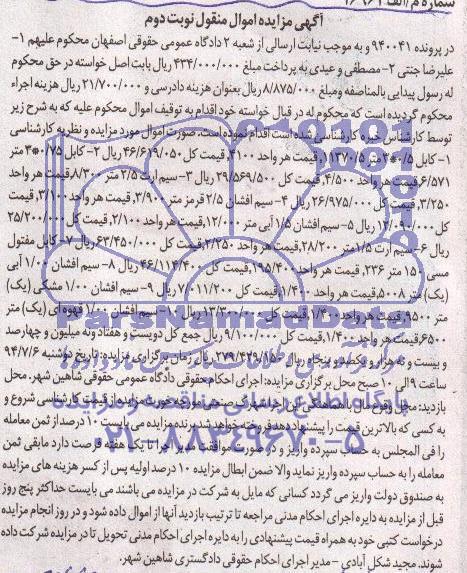 شماره م/الف ۱۶۹۶۲
آگهی مزایده اموال منقول نوبت دوم
در پرونده ۹۴۰۰۴۱ و به موجب نیابت ارسالی از شعبه ۲ دادگاه عمومی حقوقی اصفهان محکوم علیهم ۱-
علیرضا جنتی ۲- مصطفی وعیدی به پرداخت مبلغ ۴۳۴/۰۰۰/۰۰۰ ریال بابت اصل خواسته در حق محکوم
له رسول پیدایی بالمناصفه ومبلغ ۸/۸۷۵/۰۰۰ ریال بعنوان هزینه دادرسی و ۲۱/۷۰۰/۰۰۰ ریال هزینه اجراء
محکوم گردیده است که محکوم له در قبال خواسته خود اقدام به توقیف اموال محکوم علیه که به شرح زیر
توسط کارشناس خبره کارشناسی شده است اقدام نموده است. صورت اموال مورد مزایده و نظریه کارشناسی
۱- کابل ۰/۵*۳ متر ۱۱۳۷۰/۵، قیمت هر واحد ۴۱۰۰، قیمت کل ۴۶/۶۱۹/۰۵۰ ریال ۲- کابل ۰/۷۵*۴ متر
۶/۵۷۱، قیمت هر واحد ۴/۵۰۰، قیمت کل ۲۹/۵۶۹/۵۰۰ ریال ۳- سیم ارت ۲/۵ متر ۸/۳۰۰، قیمت هر واحد
۳/۲۵۰، قیمت کل ۲۶/۹۷۵/۰۰۰ ریال ۴- سیم افشان ۲/۵ قرمز متر ۳/۹۰۰، قیمت هر واحد ۳/۱۰۰، قیمت
کل ۱۲/۰۹۰/۰۰۰ ریال ۵- سیم افشان ۱/۵ آبی متر ۱۲/۰۰۰، قیمت هر واحد ۲/۱۰۰، قیمت کل ۲۵/۲۰۰/۰۰۰
ریال ۶- سیم ارت ۱/۵ متر ۲۸/۲۰۰، قیمت هر واحد ۲/۲۵۰، قیمت کل ۶۳/۴۵۰/۰۰۰ ریال ۷- کابل مفتول
مسی ۱۵۰ متر ۲۳۶، قیمت هر واحد ۱۹۵/۴۰۰، قیمت کل ۴۶/۱۱۴/۴۰۰ ریال ۸- سیم افشان ۱/۰۰ آبی
(یک) متر ۵۰۰۸، قیمت هر واحد ۱/۴۰۰، قیمت کل ۷/۰۱۱/۲۰۰ ریال ۹- سیم افشان ۱/۰۰ مشکی (یک)
متر ۹۵۰۰، قیمت هر واحد ۱/۴۰۰، قیمت کل ۱۳/۳۰۰/۰۰۰ ریال ۱۰- سیم افشان ۱/۰۰ قهوه ای (یک) متر
۶۵۰۰ قیمت هر واحد ۱/۴۰۰، قیمت کل ۹/۱۰۰/۰۰۰ ریال جمع کل دویست و هفتاد ونه میلیون و چهارصد
و بیست و نه هزار و یکصد و پنجاه ریال ۲۷۹/۴۲۹/۱۵۰ ریال زمان برگزاری مزایده: تاریخ دوشنبه ۹۴/۷/۶
ساعت ۹ الی ۱۰ صبح محل برگزاری مزایده: اجرای احکام حقوقی دادگاه عمومی حقوقی شاهین شهر. محل
بازدید: محل وقوع مال با هماهنگی این اجرا
به کسی که بالاترین قیمت را پیشنهاد دهد فروخته خواهد شد برنده مزایده می بایست ۱۰ درصد از ثمن معامله
را فی المجلس به حساب سپرده واریز و در صورت موافقت مدیر اجرا تا یک هفته فرصت دارد مابقی ثمن
معامله را به حساب سپرده واریز نماید والا ضمن ابطال مزایده ۱۰ درصد اولیه پس از کسر هزینه های مزایده
به صندوق دولت واریز می گردد کسانی که مایل به شرکت در مزایده می باشند می بایست حداکثر پنج روز
قبل از مزایده به دایره اجرای احکام مدنی مراجعه تا ترتیب بازدید آنها از اموال داده شود و در روز انجام مزایده
درخواست کتبی خود به همراه قیمت پیشنهادی را به دایره اجرای احکام مدنی تحویل تا در مزایده شرکت داده
شوند. مجید شکل آبادی - مدیر اجرای احکام حقوقی دادگستری شاهین شهر.
ParsNamadData
پایگاه اطلاع رسانی مناقصه و مزایده
۰۲۱-۸۸۳۴۹۶۷۰-۵